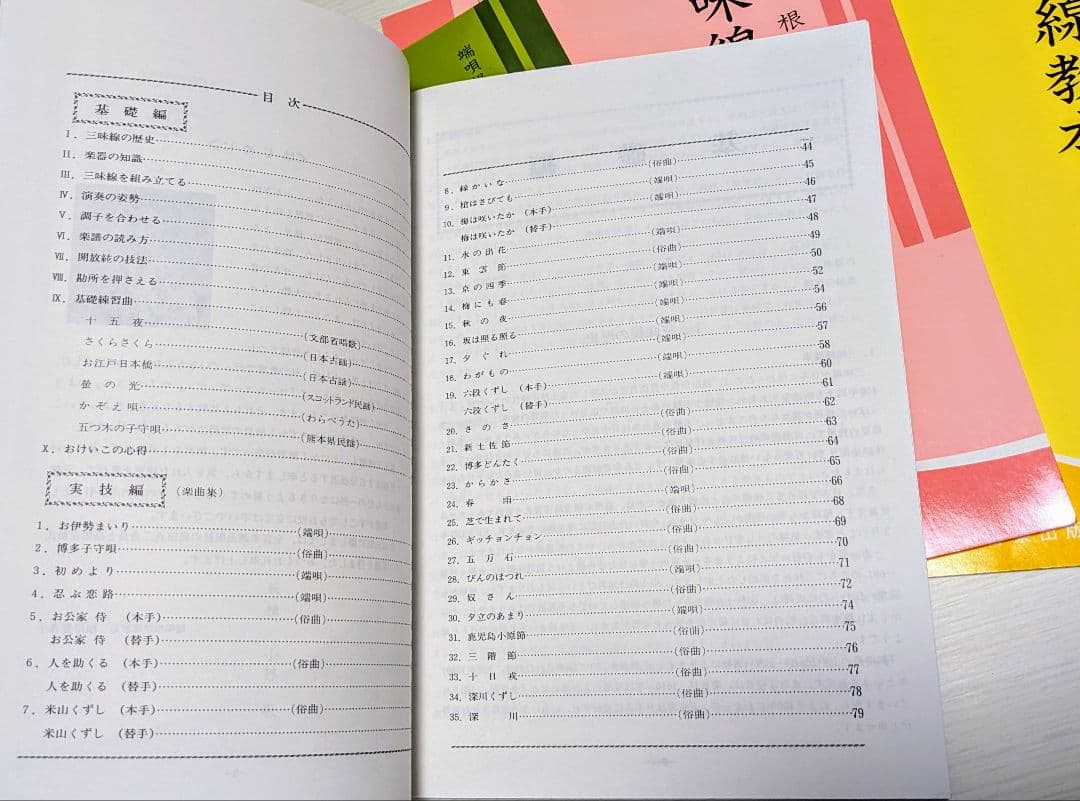 目 次
基 礎 編
Ⅰ. 三味線の歴史
Ⅱ. 楽器の知識
Ⅲ. 三味線を組み立てる
Ⅳ. 演奏の姿勢
Ⅴ. 調子を合わせる
Ⅵ. 楽譜の読み方
Ⅶ. 開放絃の技法
Ⅷ. 勘所を押さえる
Ⅸ. 基礎練習曲
十 五 夜
さくらさくら (文部省唱歌)
お江戸日本橋 (日本古謡)
螢 の 光 (日本古謡)
かぞえ唄 (スコットランド民謡)
五つ木の子守唄 (わらべうた)
(熊本県民謡)
Ⅹ. おけいこの心得
実 技 編 (楽曲集)
1. お伊勢まいり (端唄)
2. 博多子守唄 (俗曲)
3. 初めより (端唄)
4. 忍ぶ恋路 (端唄)
5. お公家侍 (本手) (俗曲)
お公家侍 (替手)
6. 人を助くる (本手) (俗曲)
人を助くる (替手)
7. 米山くずし (本手) (俗曲)
米山くずし (替手)
8. 縁かいな (俗曲) 44
9. 槍はさびても (端唄) 45
10. 梅は咲いたか (本手) (端唄) 46
梅は咲いたか (替手) 47
11. 水の出花 (端唄) 48
12. 東 雲 節 (俗曲) 49
13. 京の四季 (端唄) 50
14. 梅にも春 (端唄) 52
15. 秋 の 夜 (端唄) 54
16. 坂は照る照る (端唄) 56
17. 夕ぐれ (端唄) 57
18. わがもの (端唄) 58
19. 六段くずし (本手) (端唄) 60
六段くずし (替手) 61
20. さのさ (俗曲) 62
21. 新土佐節 (俗曲) 63
22. 博多どんたく (俗曲) 64
23. からかさ (俗曲) 65
24. 春 雨 (端唄) 66
25. 芝で生まれて (俗曲) 68
26. ギッチョンチョン (俗曲) 69
27. 五 万 石 (俗曲) 70
28. びんのほつれ (端唄) 71
29. 奴 さ ん (俗曲) 72
30. 夕立のあまり (端唄) 74
31. 鹿児島小原節 (俗曲) 75
32. 三 階 節 (俗曲) 76
33. 十 日 戎 (俗曲) 77
34. 深川くずし (俗曲) 78
35. 深 川 (俗曲) 79
端唄
根
味線
線教本
出版